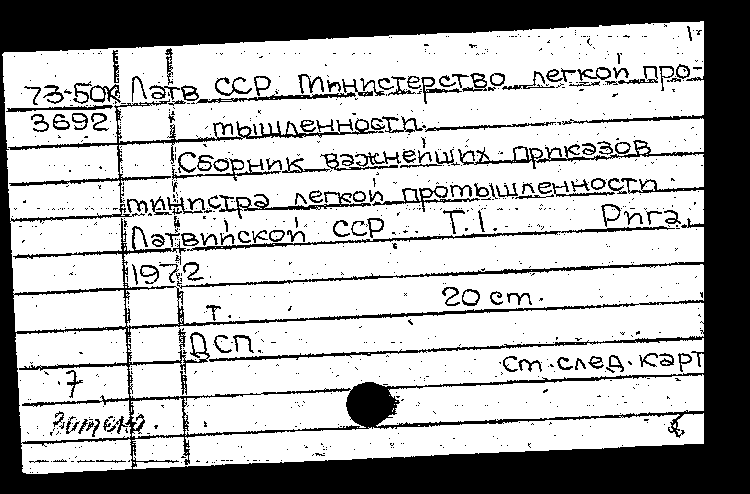 1-
73-50к Латв ССР. Министерство легкой про-
3692 мышленности.
Сборник важнейших приказов
министра легкой промышленности
Латвийской ССР... Т.1. Рига,
1972
т. 20 cm.
ВСП.
См.след.карт
7
Замена.